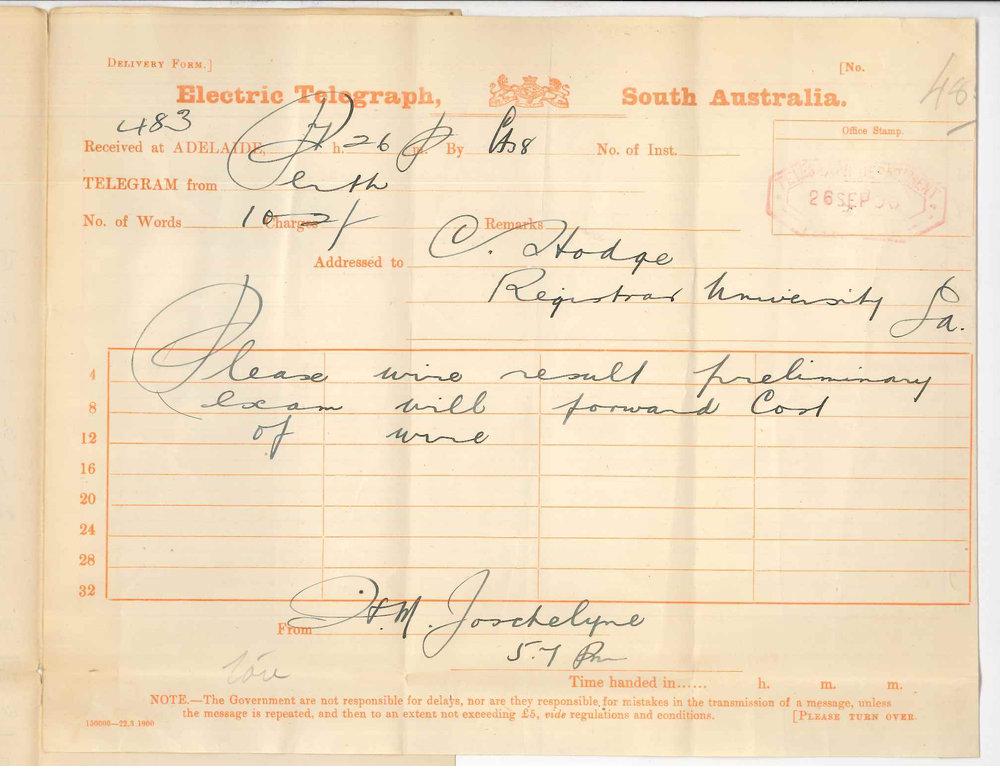 DELIVERY FORM.]
[No.
48
Electric Telegraph, South Australia.
483
Received at ADELAIDE, 7 h. 26 p m. By No. of Inst.
Office Stamp.
TELEGRAM from Perth
26 SEP
No. of Words 10 Charges 2/ Remarks
Addressed to C. Hodge
Registrar University
Sa.
4 Please wire result preliminary
8 exam will forward Cost
12 of wire
16
20
24
28
32
From H.M. Joschelyne
5.7 Pm
Time handed in...... h. m. m.
NOTE.—The Government are not responsible for delays, nor are they responsible for mistakes in the transmission of a message, unless
the message is repeated, and then to an extent not exceeding £5, vide regulations and conditions. [PLEASE TURN OVER.
150000—22.3.1900